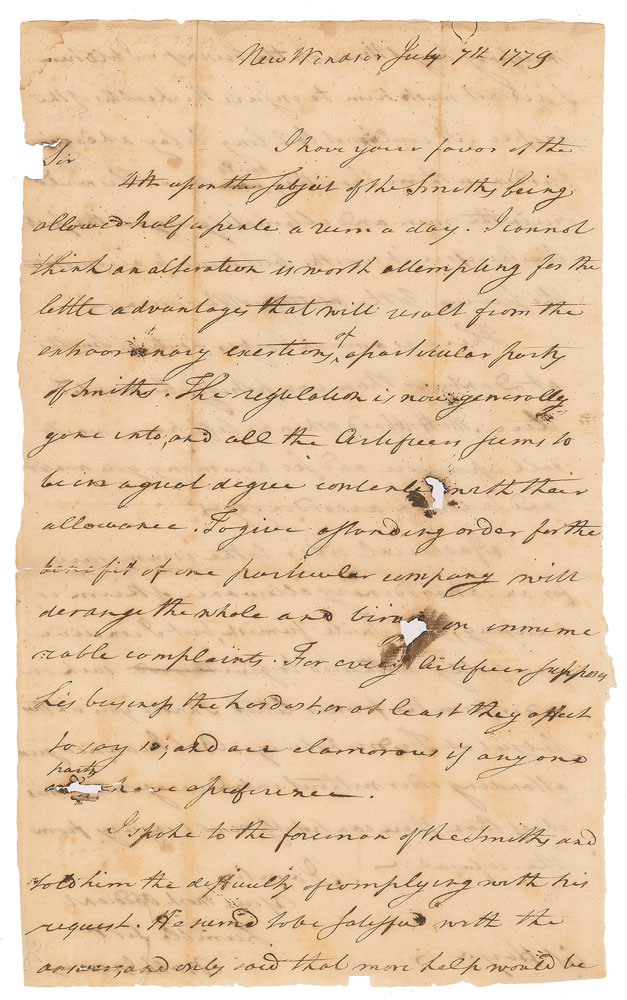 New Windsor July 7th 1779
Sir I have your favor of the
4th upon the Subject of the Smiths being
allowed half a pinte a rum a day. I cannot
think an alteration is worth attempting for the
little advantages that will result from the
extraordinary exertions of a particular party
of Smiths. The regulation is now generally
gone into, and all the Artificers seems to
be in a great degree content with their
allowance. To give a standing order for the
benefit of one particular company will
derange the whole and bring on innume
rable complaints. For every Artificer suppose
his business the hardest, or at least they affect
to say so; and are clamorous if any one
party have a preference.
I spoke to the foreman of the Smiths and
told him the difficulty of complying with his
request. He seem'd to be satisfied with the
answer, and only said that more help would be